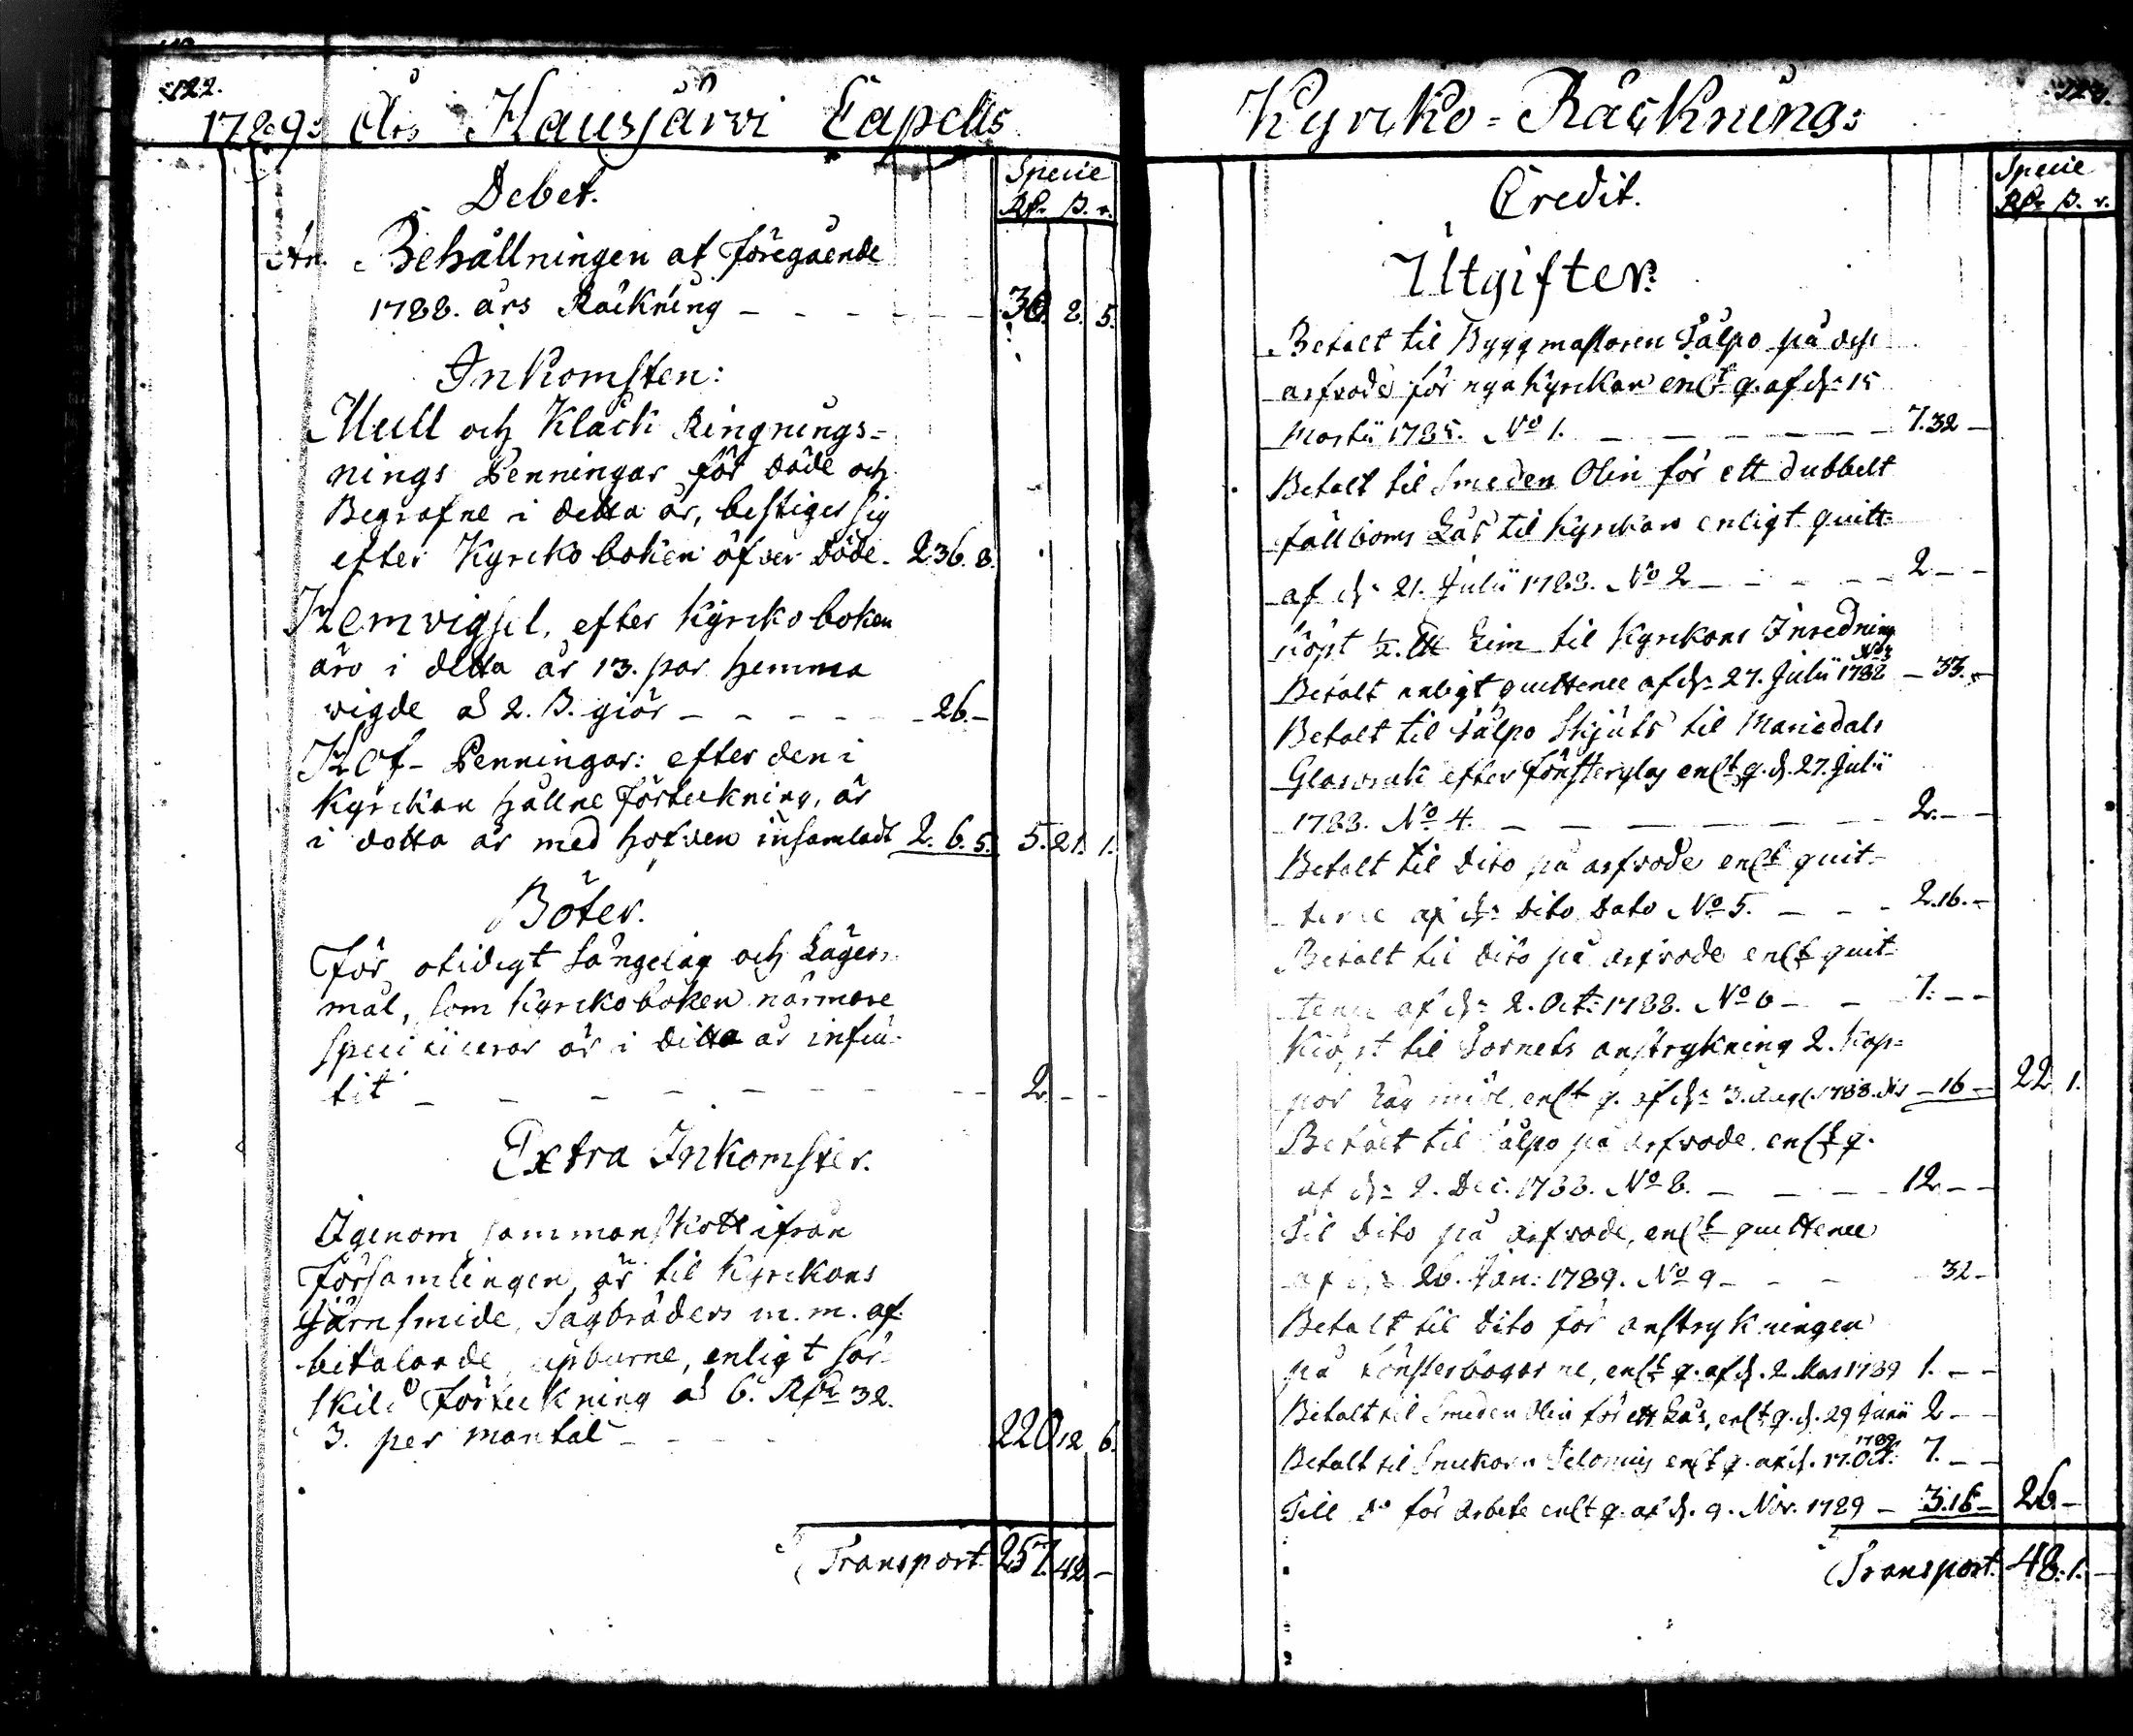 122.
1789: Års Hausjärvi Capells
Debet.
Specie
Rd. ß. r.
An. Behållningen af föregående
1788. års Räkning - - - - - - 30. 8. 5.
Inkomsten:
Mull och Klåck Ringnings=
nings Penningar för döde och
Begrafne i detta år, bestiger sig
efter Kyrcko boken öfver döde. 2.36. 8.
Hemvigsel, efter Kyrcko boken
äro i detta år 13. par hemma
vigde à 2. ß. giör - - - - - - 26. -
Hof- Penningar: efter den i
Kyrckan hållne förteckning, är
i detta år med hofven insamladt 2. 6. 5. 5. 21. 1.
Böter.
För otidigt sängelag och Lägers
mål, som Kyrckoboken närmare
specificerar är i detta år influ-
tit - - - - - - - - 2. - -
Extra Inkomster.
Igenom sammanskott ifrån
Församlingen, är til Kyrckans
Järnsmide, Sågbräders m. m. af-
betalande, upburne, enligt sär-
skild förteckning à 6. Rd 32.
ß. per mantal - - - - 220. 12. 6.
Transport 257. 42. -
123.
Kyrcko=Räcknings
Credit.
Specie
Rd. ß. r.
Utgifter:
Betalt til Byggmästaren Sälpo på dess
arfvode för nya Kyrckan enlt q. af d. 15
Martii 1785. No 1. - - - - - - 7.32 -
Betalt til Smeden Olin för ett dubbelt
fallboms Lås til Kyrckan enligt quitt=
af d. 21. Julii 1788. No 2 - - - - - 2 - -
Köpt ½. Lim til Kyrckans Inredning
No 3
Betalt enligt quittence af d. 27. Julii 1788 - 33. -
Betalt til Sälpo Skjuts til Mariedals
Glasbruk efter fönsterglas enlt q. d. 27. Julii
1788. No 4. - - - - - - - 2. - -
Betalt til Dito på arfvode enlt quit-
tence af d. Dito Dato No 5. - - - 2.16. -
Betalt til Dito på arfvode enlt quit-
tence af d. 2. Oct: 1788. No 6 - - - 1. - -
Kiöpt til Tornets anstrykning 2. Kap-
par enlt q. af d. 3. Aug. 1788. - 16 - 22. 1.
Betalt til Sälpo på arfvode, enlt q.
af d. 2. Dec. 1788. No 8. - - - - 12. - -
Til Dito på arfvode, enlt quittence
af d. 26. Jan: 1789. No 9 - - - - 32 -
Betalt til Dito för anstrykningen
på fönsterbogarne, enlt q. af d. 2. Mar 1789 1. - -
Betalt til Smeden Olin för ett Lås, enlt q. d. 29 Junii 2 - -
1789
Betalt til Snickaren enlt q. af d. 17. Oct: 7. - -
Till Do för Arbete enlt q. af d. 9. Nov. 1789 - 3.16 - 26. -
Transport. 48. 1. -